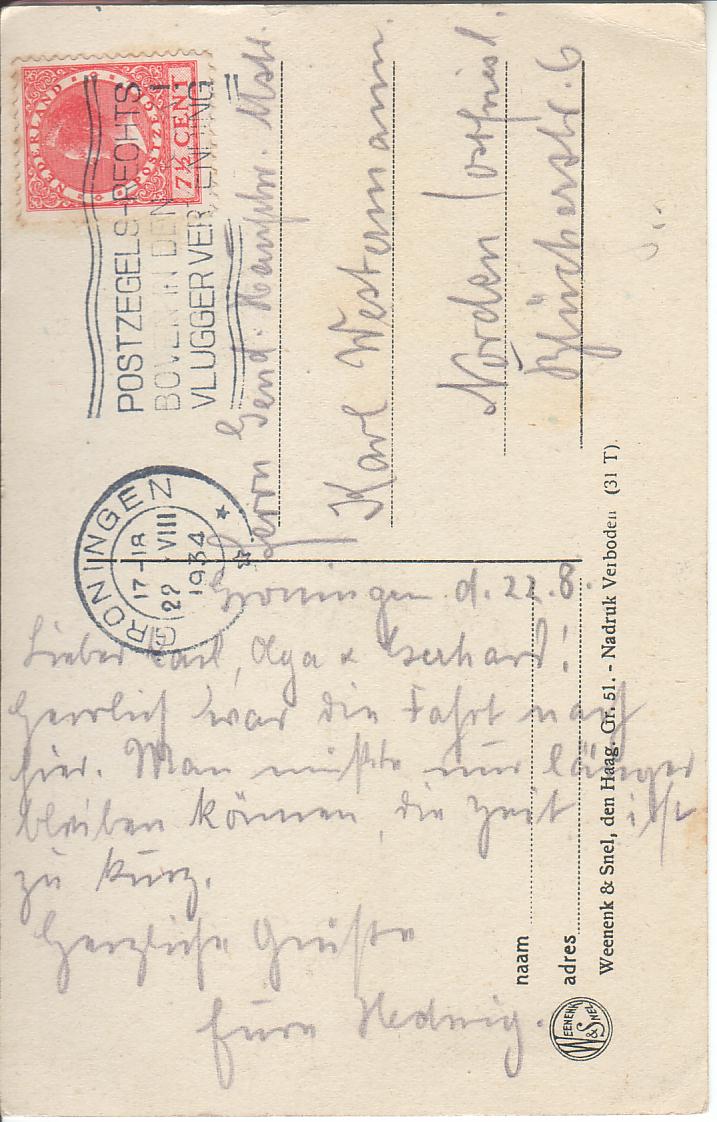 NEDERLAND
POSTZEGEL
7½ CENT
POSTZEGELS RECHTS
BOVEN IN DEN
VLUGGER VERZENDING
GRONINGEN
17-18
22 VIII
1934
Herrn Gend. Hauptw. Mstr.
Karl Westermann
Norden (Ostfriesl.
Blücherstr. 6
Groningen d. 22.8.
Lieber Karl, Olga & Gerhard!
Herrlich war die Fahrt nach
hier. Man müßte nur länger
bleiben können, die Zeit ist
zu kurz.
Herzliche Grüße
Eure Hedwig.
naam
adres
Weenenk & Snel, den Haag. Gr. 51. - Nadruk Verboden (31 T).
WEENENK & SNEL